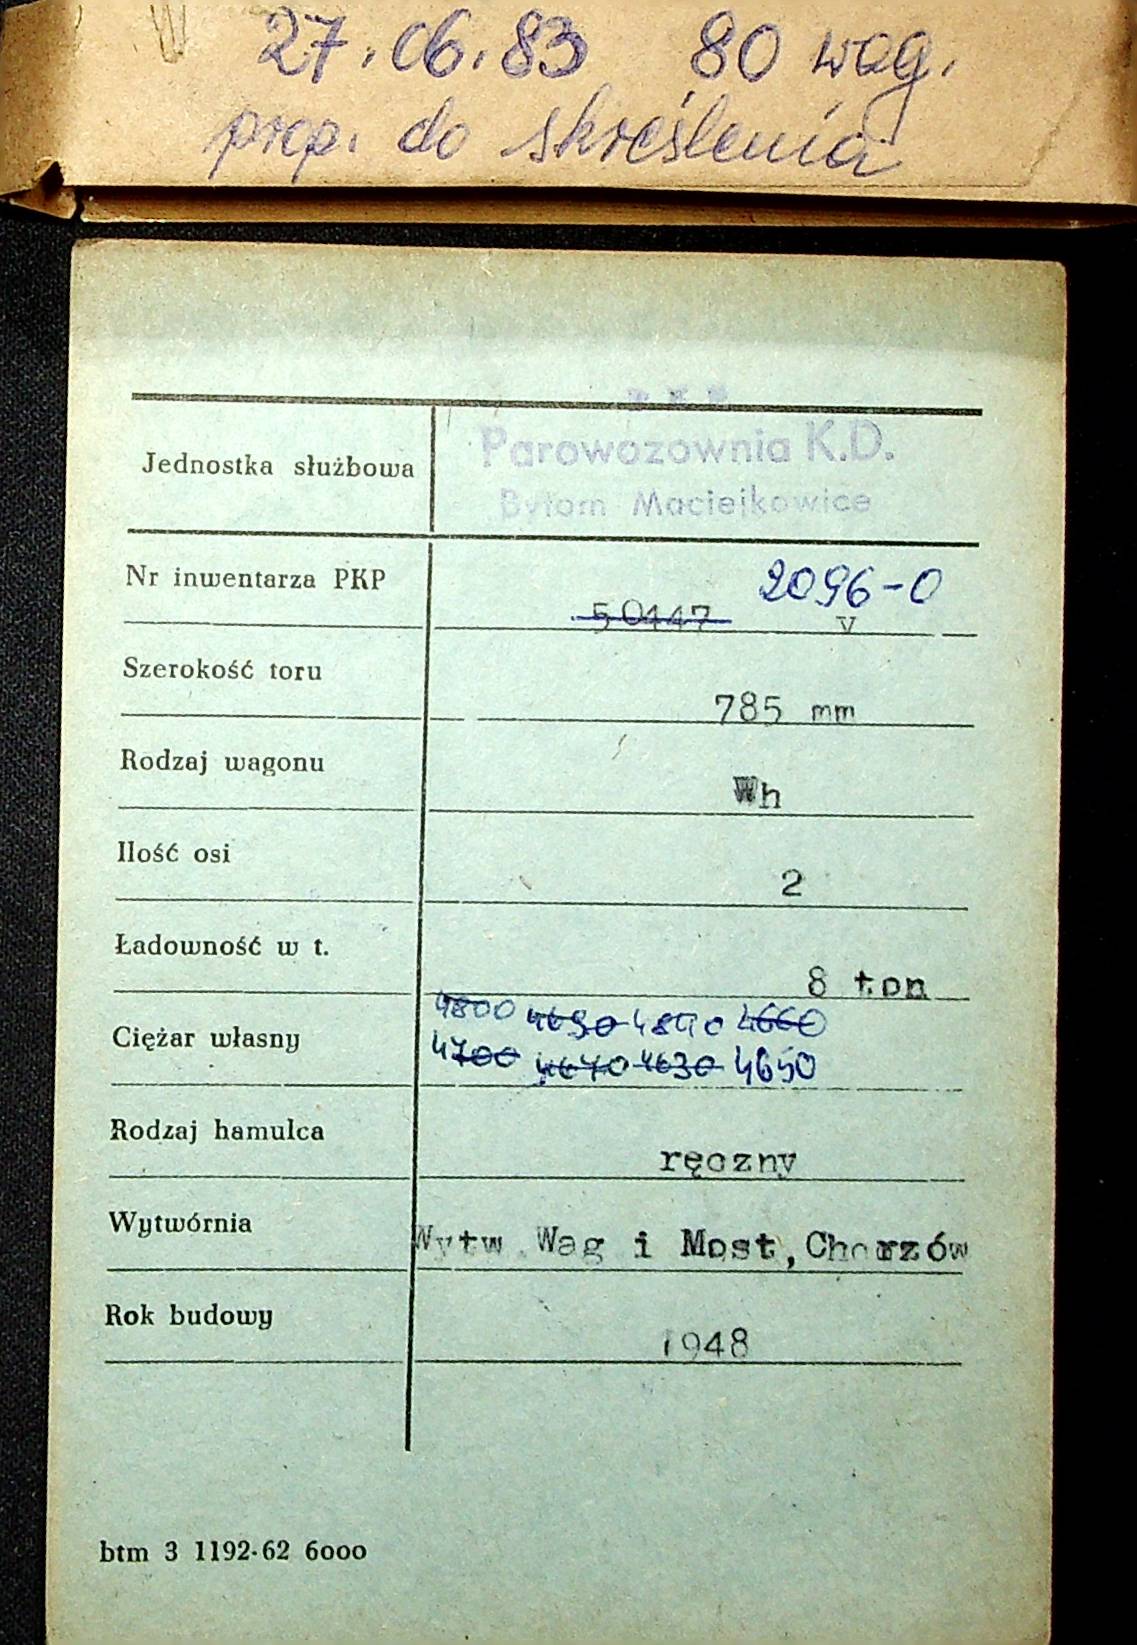 27.06.83 80 wag.
prop. do skreślenia
P K P
Parowozownia K.D.
Bytom Maciejkowice
Jednostka służbowa
Nr inwentarza PKP 50447 2096-0
v
Szerokość toru 785 mm
Rodzaj wagonu Wh
Ilość osi 2
Ładowność w t. 8 ton
4800 4690 4840 4660
Ciężar własny
4700 4670 4630 4650
Rodzaj hamulca ręczny
Wytwórnia Wytw Wag i Most,Chorzów
Rok budowy 1948
btm 3 1192-62 6000